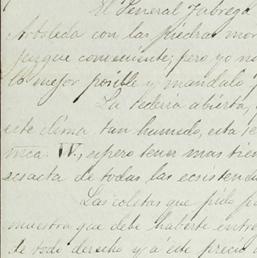 El General Fabrega
Arboleda con las piedras mor
juzgue conveniente; pero yo no
lo mejor posible y mandalo
La tetería abierta,
este clima tan humedo, esta te
nica. W, espero tener mas tien
exsacta de todas las ecsistenci
Las coletas que pide p
muestra que debe haberte entre
te todo derecho y a este precio